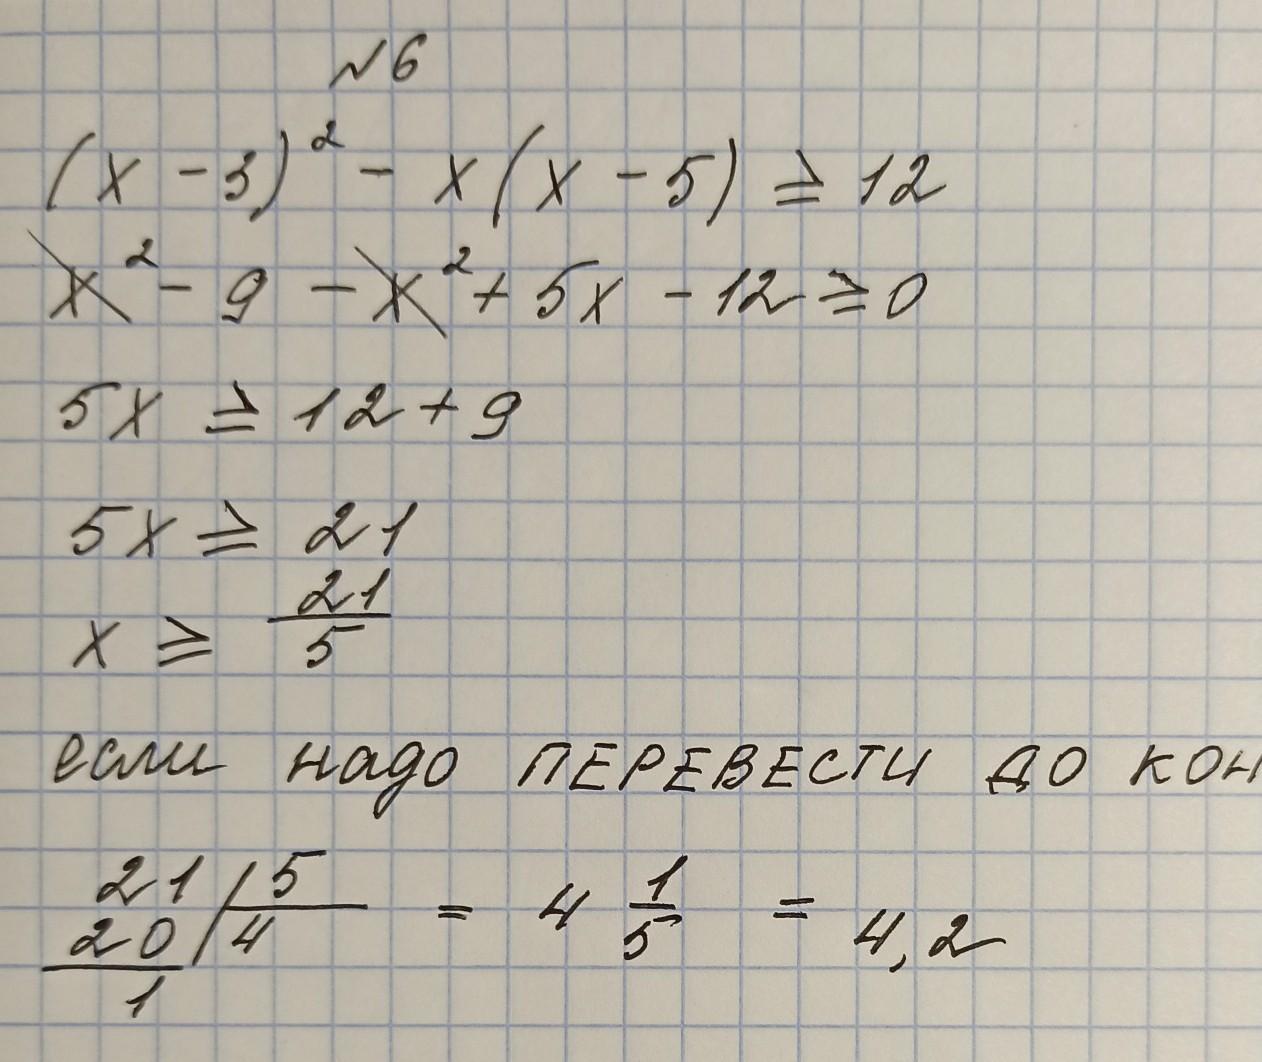 №6
(x - 3)² - x(x - 5) ≥ 12
x² - 9 - x² + 5x - 12 ≥ 0
5x ≥ 12 + 9
5x ≥ 21
x ≥ 21/5
если надо ПЕРЕВЕСТИ ДО КОН
21 | 5 = 4 1/5 = 4,2
20 | 4
1